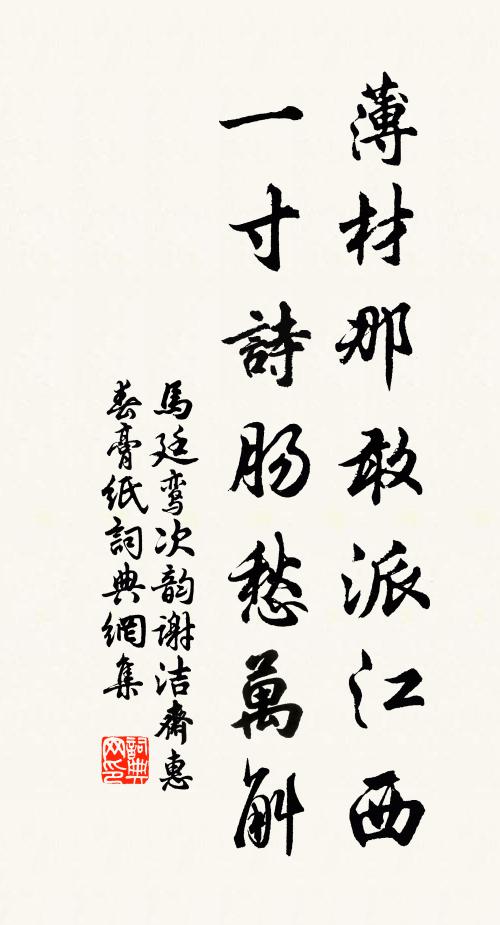 薄材那敢派江西
一寸詩肠愁萬斛
馬廷鸾次韵谢洁齋惠
春膏纸詞典網集
詞典网印